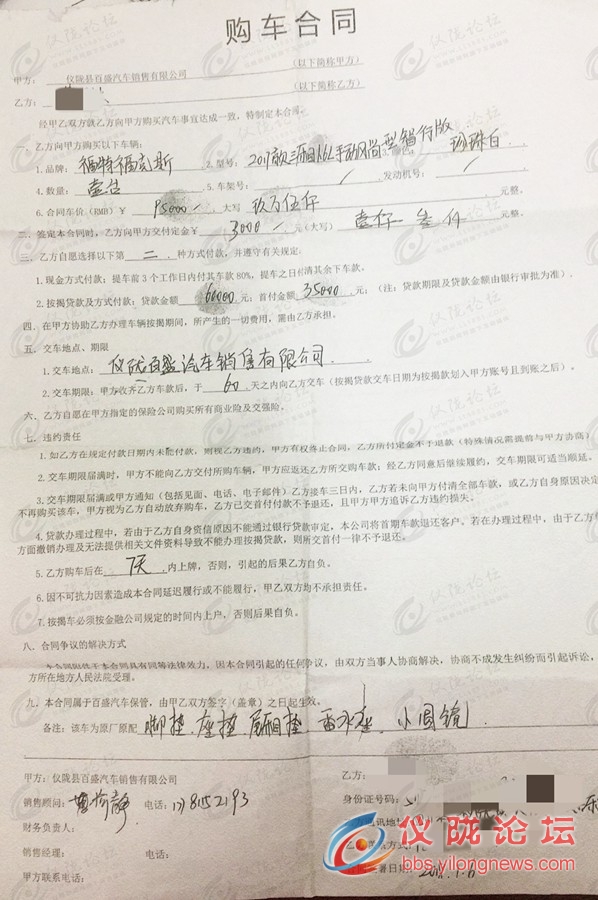 购车合同
甲方： 仪陇县百盛汽车销售有限公司 （以下简称甲方）
乙方： （以下简称乙方）
经甲乙双方就乙方向甲方购买汽车事宜达成一致，特制定本合同。
一、乙方向甲方购买以下车辆：
1.品牌： 福特福克斯 2.型号： 2017款三厢1.6L手动风尚型智行版 珍珠白
4.数量： 壹台 5.车架号： / 发动机号： /
6.合同车价（RMB）￥ 95000 大写 玖万伍仟 元整。
二、签定本合同时，乙方向甲方交付定金￥ 3000 元（大写） 叁仟 元整。
三、乙方自愿选择以下第 二 种方式付款，并遵守有关规定。
1.现金方式付款；提车前3个工作日内付其车款80%，提车之日付清其余下车款。
2.按揭贷款及方式付款：贷款金额 60000 元；首付金额 35000 元；（注：贷款期限及贷款金额由银行审批为准）.
四、在甲方协助乙方办理车辆按揭期间，所产生的一切费用，需由乙方承担。
五、交车地点、期限
1.交车地点： 仪陇百盛汽车销售有限公司 。
2.交车期限：甲方收齐乙方车款后，于 60 天之内向乙方交车（按揭贷款交车日期为按揭款划入甲方账号且到账之后）。
六、乙方自愿在甲方指定的保险公司购买所有商业险及交强险。
七、违约责任
1.如乙方在规定付款日期内未能付款，则视乙方违约，甲方有权终止合同，乙方所付定金不予退款（特殊情况需提前与甲方协商）
2.交车期限届满时，甲方不能向乙方交付所购车辆，甲方应返还乙方所交购车款；经乙方同意后继续履约，交车期限可适当顺延。
3.交车期限届满或甲方通知（包括见面、电话、电子邮件）乙方接车三日内，乙方若未向甲方付清全部车款，或乙方自身原因决定
不再购买该车，甲方视为乙方自动放弃购车，乙方已交首付付款不予退还，且甲方追诉乙方违约损失。
4.贷款办理过程中，若由于乙方自身资信原因不能通过银行贷款审定，本公司将首期车款退还客户。若在办理过程中，由于乙方
方面撤销办理及无法提供相关文件资料导致不能办理按揭贷款，则所交首付一律不予退还。
5.乙方购车后在 7天 内上牌，否则，引起的后果乙方自负。
6.因不可抗力因素造成本合同延迟履行或不能履行，甲乙双方均不承担责任。
7.按揭车必须按金融公司规定的时间内上户，否则后果自负。
八、合同争议的解决方式
本合同具有同等法律效力，因本合同引起的任何争议，由双方当事人协商解决，协商不成发生纠纷而引起诉讼，
方所在地方人民法院受理。
九、本合同属于百盛汽车保管，由甲乙双方签字（盖章）之日起生效。
备注：该车为原厂原配 脚垫、座垫、尾箱垫、香水座、小圆镜.
甲方：仪陇县百盛汽车销售有限公司 乙方：
销售顾问： 电话： 身份证号码：
财务负责人： 通讯地址
销售经理： 电话：
甲方联系电话：
仪陇论坛
bbs.yilongnews.com